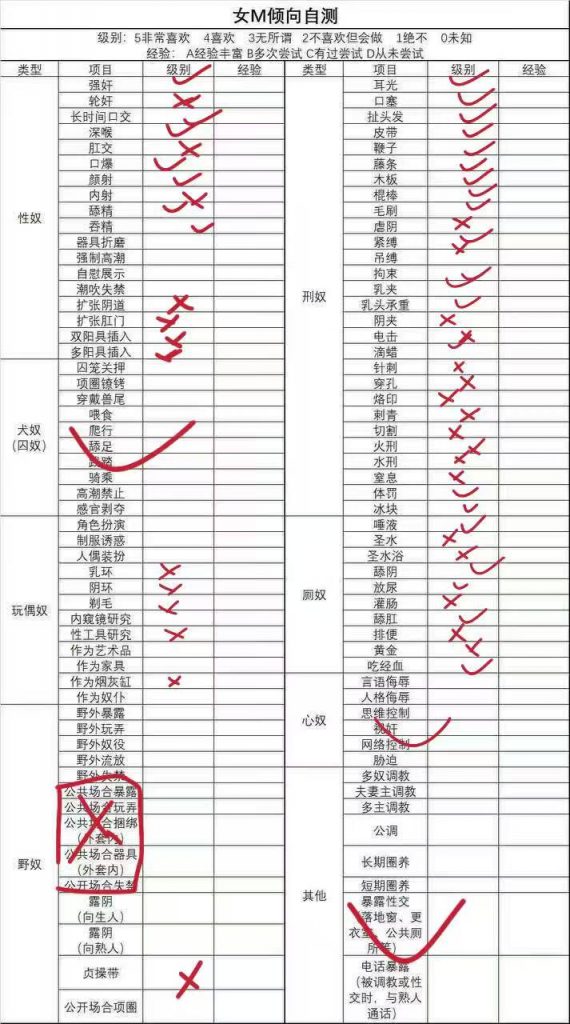 女M倾向自测
级别：5非常喜欢 4喜欢 3无所谓 2不喜欢但会做 1绝不 0未知
经验： A经验丰富 B多次尝试 C有过尝试 D从未尝试
类型 项目 级别 经验 类型 项目 级别 经验
性奴
强奸
轮奸
长时间口交
深喉
肛交
口爆
颜射
内射
舔精
吞精
器具折磨
强制高潮
自慰展示
潮吹失禁
扩张阴道
扩张肛门
双阳具插入
多阳具插入
犬奴
（囚奴）
囚笼关押
项圈镣铐
穿戴兽尾
喂食
爬行
舔足
骑乘
高潮禁止
感官剥夺
玩偶奴
角色扮演
制服诱惑
人偶装扮
乳环
阴环
剃毛
内窥镜研究
性工具研究
作为艺术品
作为家具
作为烟灰缸
作为奴仆
野奴
野外暴露
野外玩弄
野外奴役
野外流放
野外失禁
公共场合暴露
公共场合玩弄
公共场合捆绑
（外套内）
公共场合器具
（外套内）
公开场合失禁
露阴
（向生人）
露阴
（向熟人）
贞操带
公开场合项圈
刑奴
耳光
口塞
扯头发
皮带
鞭子
藤条
木板
棍棒
毛刷
虐阴
紧缚
吊缚
拘束
乳夹
乳头承重
阴夹
电击
滴蜡
针刺
穿孔
烙印
刺青
切割
火刑
水刑
窒息
体罚
冰块
厕奴
唾液
圣水
圣水浴
舔阴
放尿
灌肠
舔肛
排便
黄金
吃经血
心奴
言语侮辱
人格侮辱
思维控制
视奸
网络控制
胁迫
其他
多奴调教
夫妻主调教
多主调教
公调
长期圈养
短期圈养
暴露性交
（落地窗、更
衣室、公共厕
所等）
电话暴露
（被调教或性
交时，与熟人
通话）